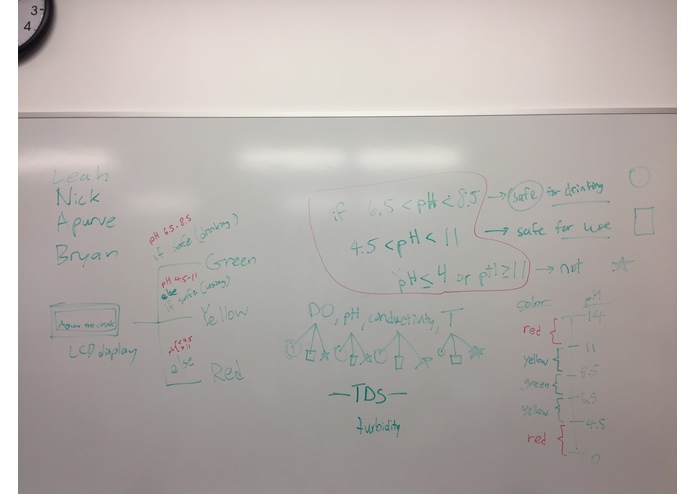 3
4
Leah
Nick
Apurve
Bryan
LCD display
pH 6.5-8.5
if safe (drinking)
Green
pH 4.5-11
else
if safe (using)
Yellow
else
Red
if 6.5 < pH < 8.5 → safe for drinking
4.5 < pH < 11 → safe for use
pH ≤ 4 or pH ≥ 11 → not
DO, pH, conductivity, T
—TDS—
turbidity
color pH
14
red
11
yellow
8.5
green
6.5
yellow
4.5
red
0